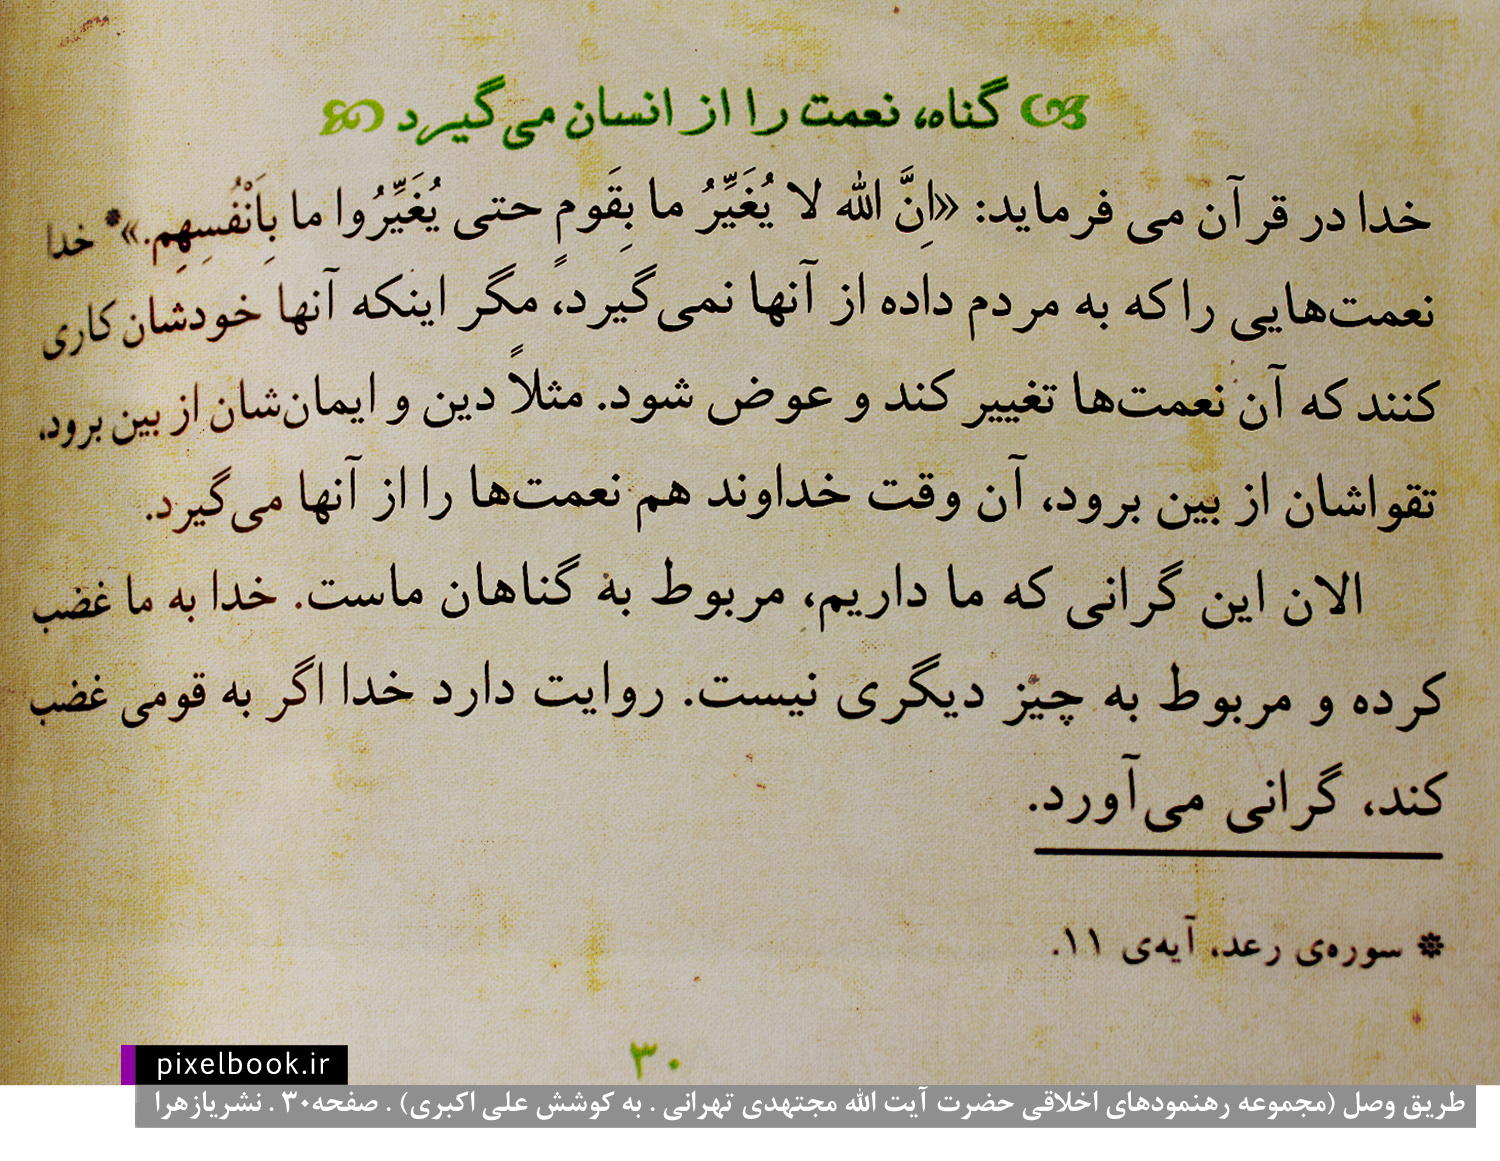 گناه، نعمت را از انسان می‌گیرد
خدا در قرآن می فرماید: «اِنَّ الله لا یُغَیِّرُ ما بِقَومٍ حتی یُغَیِّرُوا ما بِاَنْفُسِهِم.»* خدا
نعمت‌هایی را که به مردم داده از آنها نمی‌گیرد، مگر اینکه آنها خودشان کاری
کنند که آن نعمت‌ها تغییر کند و عوض شود. مثلاً دین و ایمان‌شان از بین برود،
تقواشان از بین برود، آن وقت خداوند هم نعمت‌ها را از آنها می‌گیرد.
الان این گرانی که ما داریم، مربوط به گناهان ماست. خدا به ما غضب
کرده و مربوط به چیز دیگری نیست. روایت دارد خدا اگر به قومی غضب
کند، گرانی می‌آورد.
* سوره‌ی رعد، آیه‌ی ۱۱.
۳۰
pixelbook.ir
طریق وصل (مجموعه رهنمودهای اخلاقی حضرت آیت الله مجتهدی تهرانی . به کوشش علی اکبری) . صفحه۳۰ . نشریازهرا